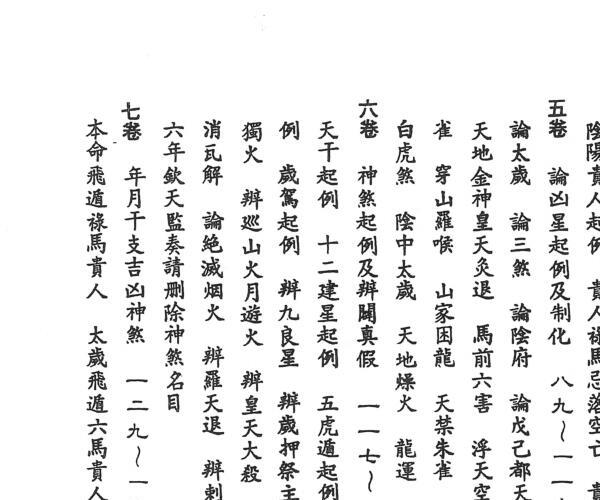 陰陽貴人起例　貴人祿馬忌落空亡　貴
五卷　論凶星起例及制化　八九～一一
論太歲　論三煞　論陰府　論戊己都天
天地金神皇天灸退　馬前六害　浮天空
雀　穿山羅喉　山家困龍　天禁朱雀
白虎煞　陰中太歲　天地燥火　龍運
六卷　神煞起例及辦闢真假　一一七～
天干起例　十二建星起例　五虎遁起例
例　歲駕起例　辦九良星　辦歲押祭主
獨火　辦巡山火月遊火　辦皇天大殺
消瓦解　論絕滅烟火　辦羅天退　辦剌
六年欽天監奏請刪除神煞名目
七卷　年月干支吉凶神煞　一二九～一
本命飛遁祿馬貴人　太歲飛遁六馬貴人